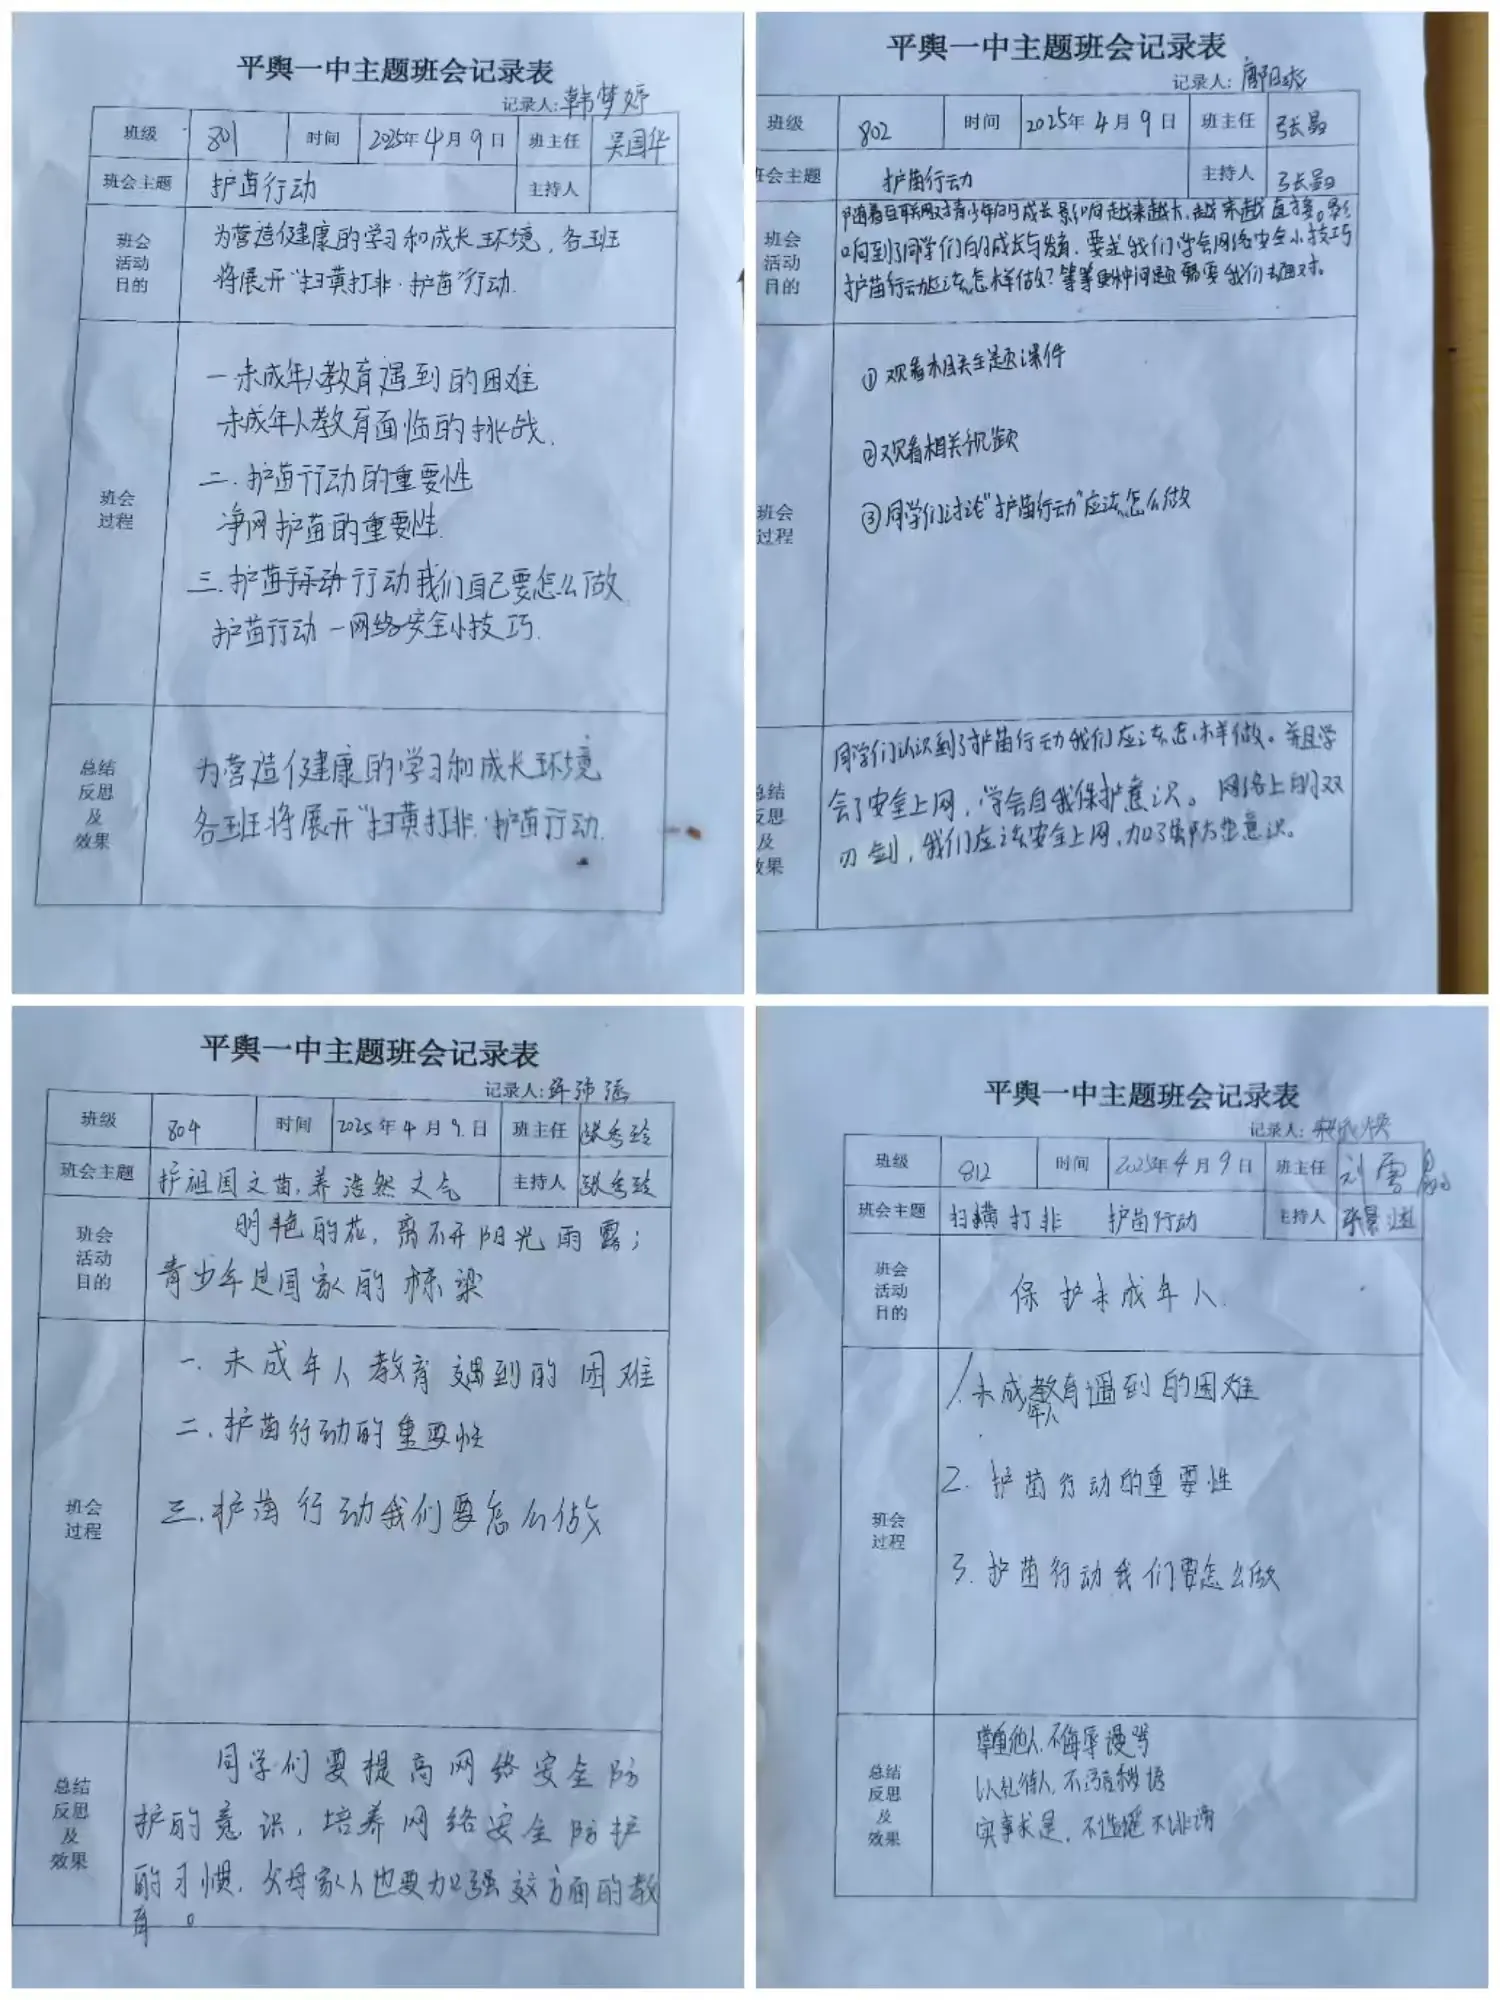 平舆一中主题班会记录表
记录人:韩梦婷
班级 801 时间 2025年4月9日 班主任 吴国华
班会主题 护苗行动 主持人
班会活动目的
为营造健康的学习和成长环境，各班
将展开“扫黄打非·护苗”行动.
班会过程
一未成年人教育遇到的困难
未成年人教育面临的挑战.
二.护苗行动的重要性
净网护苗的重要性.
三.护苗行动我们自己要怎么做
护苗行动—网络安全小技巧.
总结反思及效果
为营造健康的学习和成长环境
各班将展开“扫黄打非·护苗行动.
平舆一中主题班会记录表
记录人:
班级 802 时间 2025年4月9日 班主任 张
班会主题 护苗行动 主持人 张
班会活动目的
随着互联网对青少年的成长影响越来越大,越来越直接。影
响到了同学们的成长与发育.要求我们学会网络安全小技巧
护苗行动应该怎样做?等等种问题需要我们去面对。
班会过程
①观看相关主题课件
②观看相关视频
③同学们讨论“护苗行动”应该怎么做
总结反思及效果
同学们认识到了护苗行动我们应该怎样做。并且学
会了安全上网,学会自我保护意识。网络上的双
刃剑,我们应该安全上网,加了强防意识。
平舆一中主题班会记录表
记录人:
班级 804 时间 2025年4月9日 班主任 张秀玲
班会主题 护祖国文苗,养浩然文气 主持人 张秀玲
班会活动目的
明艳的花,离不开阳光雨露;
青少年是国家的栋梁
班会过程
一.未成年人教育遇到的困难
二.护苗行动的重要性
三.护苗行动我们要怎么做
总结反思及效果
同学们要提高网络安全防
护的意识,培养网络安全防护
的习惯,父母家人也要加强这方面的教
育。
平舆一中主题班会记录表
记录人:
班级 812 时间 2025年4月9日 班主任 刘雪
班会主题 扫横打非 护苗行动 主持人 张景
班会活动目的
保护未成年人.
班会过程
1.未成年人教育遇到的困难
2.护苗行动的重要性
3.护苗行动我们要怎么做
总结反思及效果
尊重他人,不侮辱谩骂
以礼待人,不污言秽语
实事求是,不造谣不诽谤